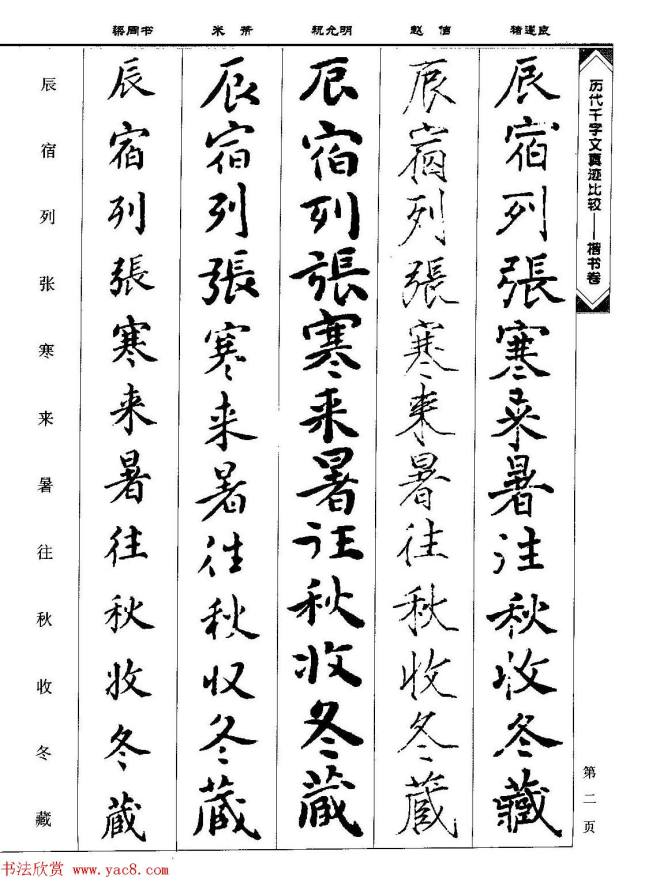 历代千字文真迹比较——楷书卷
第二页
褚遂良
辰宿列張寒来暑往秋收冬藏
赵佶
辰宿列張寒来暑往秋收冬藏
祝允明
辰宿列張寒来暑往秋收冬藏
米芾
辰宿列張寒来暑往秋收冬藏
梁同书
辰宿列張寒来暑往秋收冬藏
辰宿列张寒来暑往秋收冬藏
书法欣赏 www.yac8.com